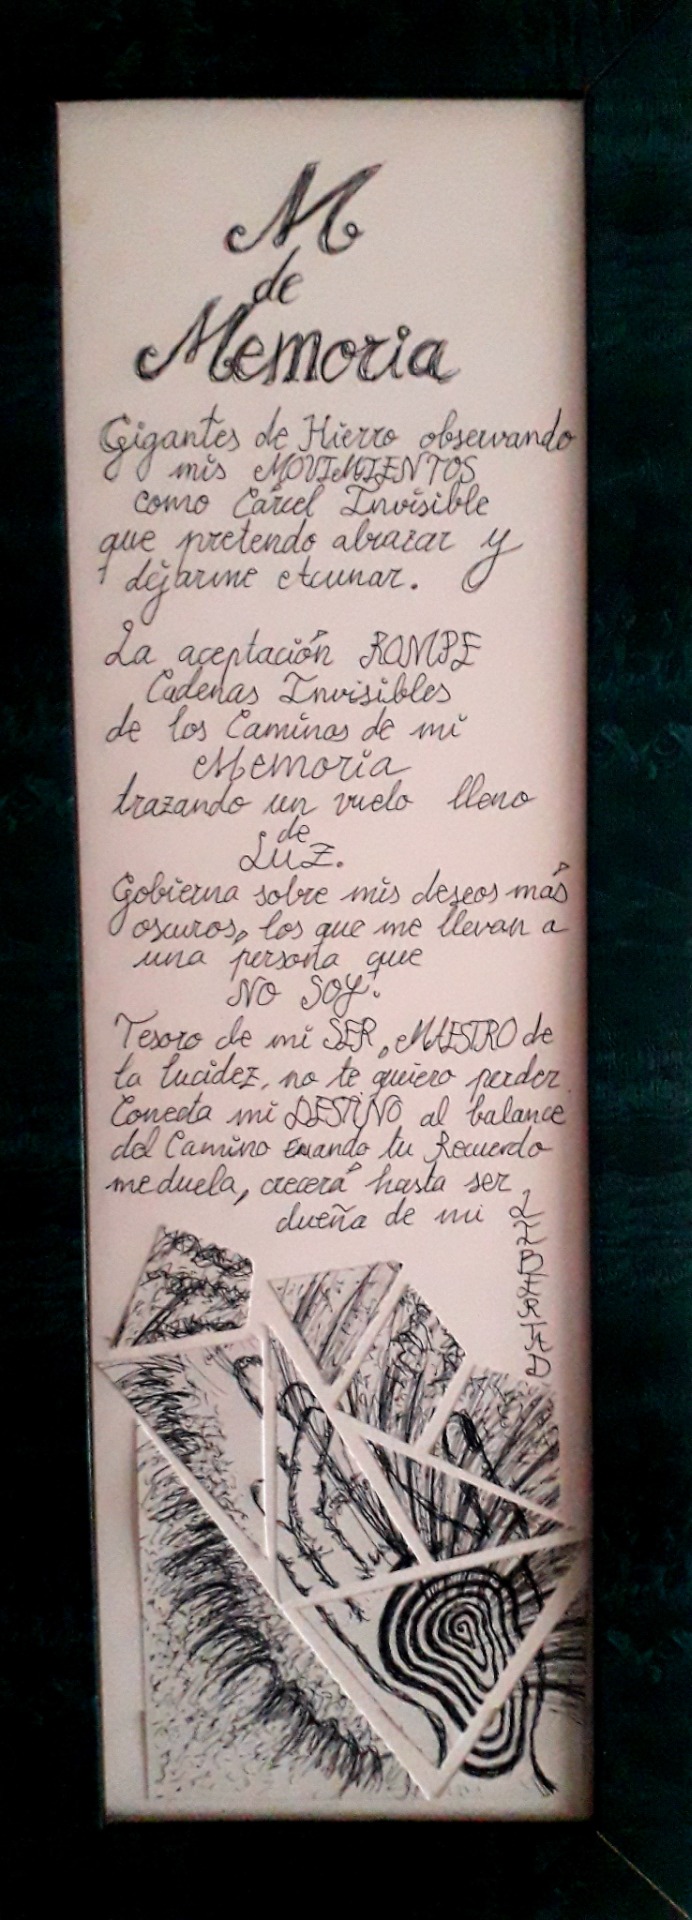 M
de
Memoria
Gigantes de Hierro observando
mis MOVIMIENTOS
como Cárcel Invisible
que pretendo abrazar y
dejarme acunar.
La aceptación ROMPE
Cadenas Invisibles
de los Caminos de mi
Memoria
trazando un vuelo lleno
de
LUZ.
Gobierna sobre mis deseos más
oscuros, los que me llevan a
una persona que
NO SOY.
Tesoro de mi SER, MAESTRO de
la lucidez, no te quiero perder.
Conecta mi DESTINO al balance
del Camino cuando tu Recuerdo
me duela, crecerá hasta ser
dueña de mi LIBERTAD